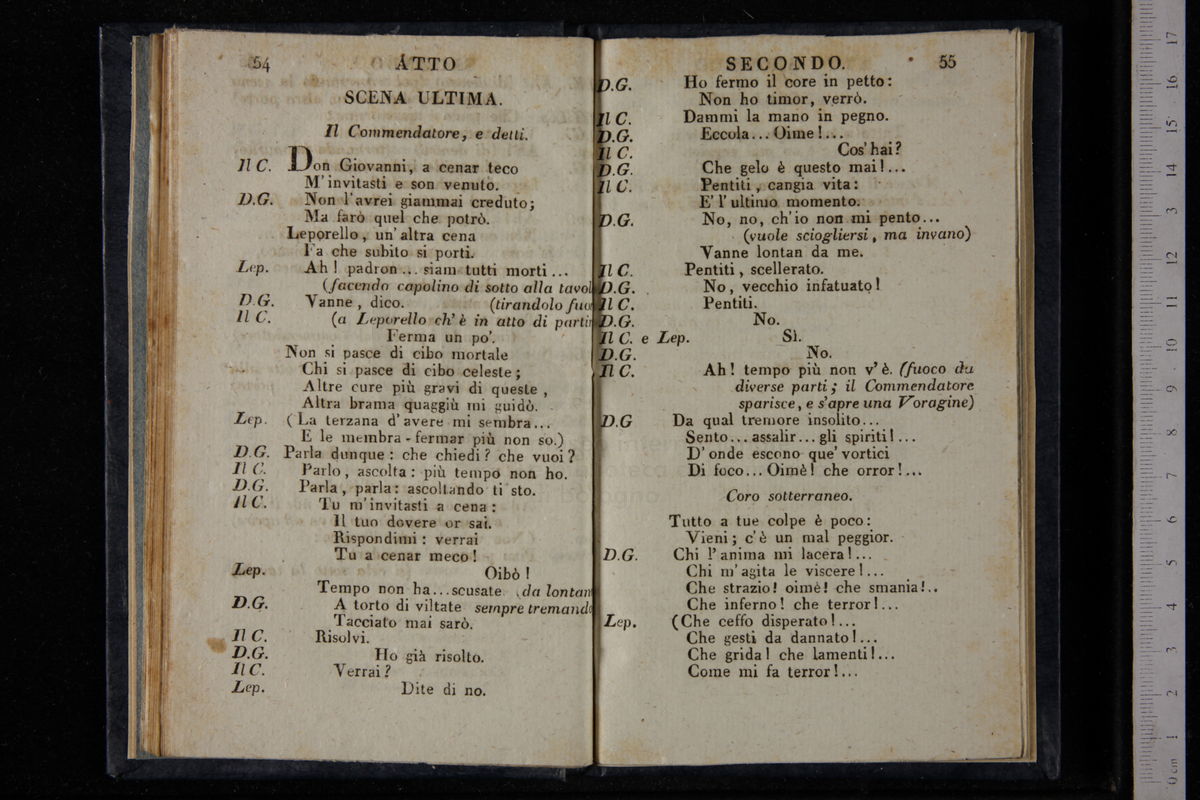 54 ATTO
SCENA ULTIMA.
Il Commendatore, e detti.
Il C. Don Giovanni, a cenar teco
M'invitasti e son venuto.
D.G. Non l'avrei giammai creduto;
Ma farò quel che potrò.
Leporello, un'altra cena
Fa che subito si porti.
Lep. Ah! padron... siam tutti morti...
(facendo capolino di sotto alla tavol
D.G. Vanne, dico. (tirandolo fuo
Il C. (a Leporello ch'è in atto di partir
Ferma un po'.
Non si pasce di cibo mortale
Chi si pasce di cibo celeste;
Altre cure più gravi di queste,
Altra brama quaggiù mi guidò.
Lep. (La terzana d'avere mi sembra...
E le membra-fermar più non so.)
D.G. Parla dunque: che chiedi? che vuoi?
Il C. Parlo, ascolta: più tempo non ho.
D.G. Parla, parla: ascoltando ti sto.
Il C. Tu m'invitasti a cena:
Il tuo dovere or sai.
Rispondimi: verrai
Tu a cenar meco!
Lep. Oibò!
Tempo non ha...scusate. da lontan
D.G. A torto di viltate sempre tremando
Tacciato mai sarò.
Il C. Risolvi.
D.G. Ho già risolto.
Il C. Verrai?
Lep. Dite di no.
SECONDO. 55
D.G. Ho fermo il core in petto:
Non ho timor, verrò.
Il C. Dammi la mano in pegno.
D.G. Eccola... Oime!...
Il C. Cos'hai?
D.G. Che gelo è questo mai!...
Il C. Pentiti, cangia vita:
E' l'ultimo momento.
D.G. No, no, ch'io non mi pento...
(vuole sciogliersi, ma invano)
Vanne lontan da me.
Il C. Pentiti, scellerato.
D.G. No, vecchio infatuato!
Il C. Pentiti.
D.G. No.
Il C. e Lep. Sì.
D.G. No.
Il C. Ah! tempo più non v'è. (fuoco da
diverse parti; il Commendatore
sparisce, e s'apre una Voragine)
D.G Da qual tremore insolito...
Sento... assalir... gli spiriti!...
D'onde escono que' vortici
Di foco... Oimè! che orror!...
Coro sotterraneo.
Tutto a tue colpe è poco:
Vieni; c'è un mal peggior.
D.G. Chi l'anima mi lacera!...
Chi m'agita le viscere!...
Che strazio! oimè! che smania!..
Che inferno! che terror!...
Lep. (Che ceffo disperato!...
Che gesti da dannato!...
Che grida! che lamenti!...
Come mi fa terror!...
0 cm 1 2 3 4 5 6 7 8 9 10 11 12 13 14 15 16 17